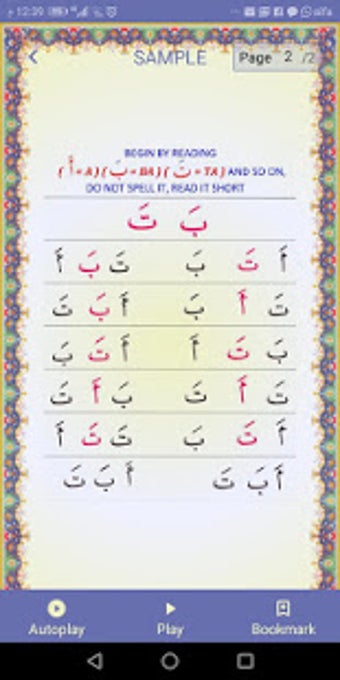 12:39
SAMPLE Page 2 /2
BEGIN BY READING
( أَ = A ) ( بَ = BA ) ( تَ = TA ) AND SO ON,
DO NOT SPELL IT, READ IT SHORT
بَ تَ
أَ تَ بَ تَ بَ أَ
تَ أَ بَ أَ بَ تَ
بَ تَ أَ أَ تَ بَ
تَ أَ تَ بَ أَ تَ
أَ تَ بَ تَ تَ أَ
أَ بَ تَ أَ بَ تَ
Autoplay Play Bookmark